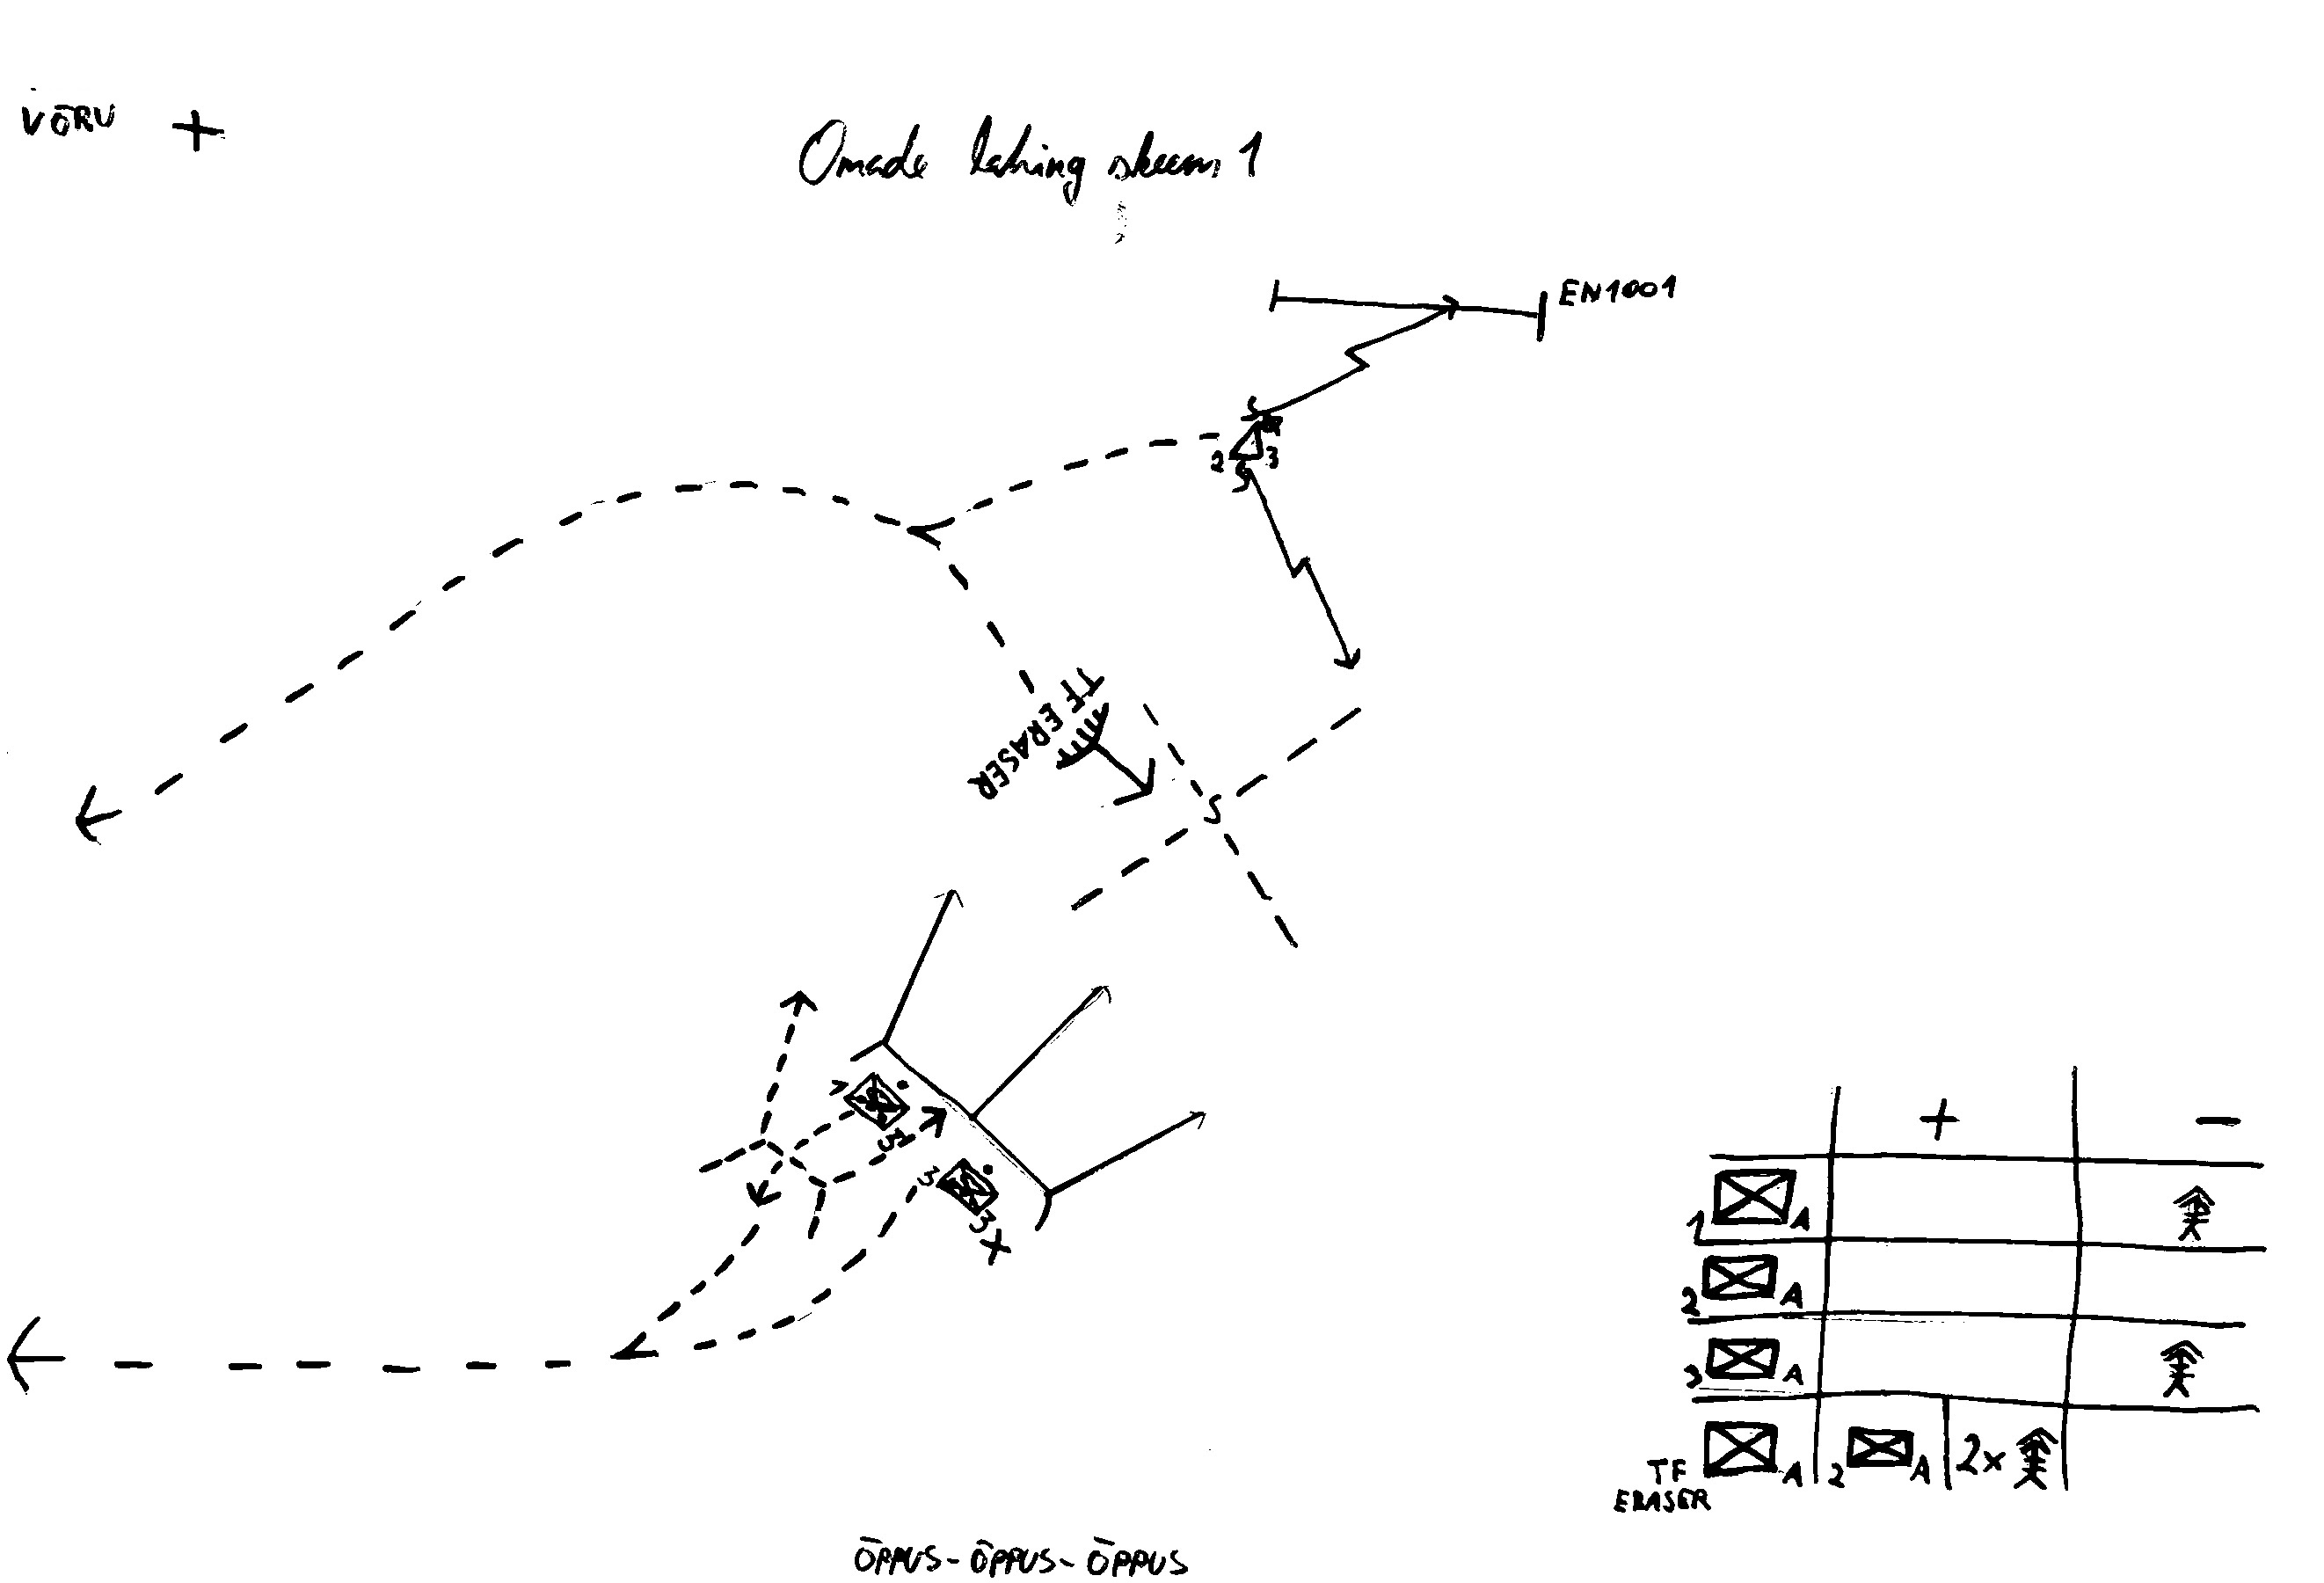 VÕRU +
Omade lahing skeem 1
EN1001
2 3
S
TF ERASER
S
1
3
3
3
+ -
1 A
2 A
3 A
TF ERASER A 2 A 2x
ÕPPUS-ÕPPUS-ÕPPUS